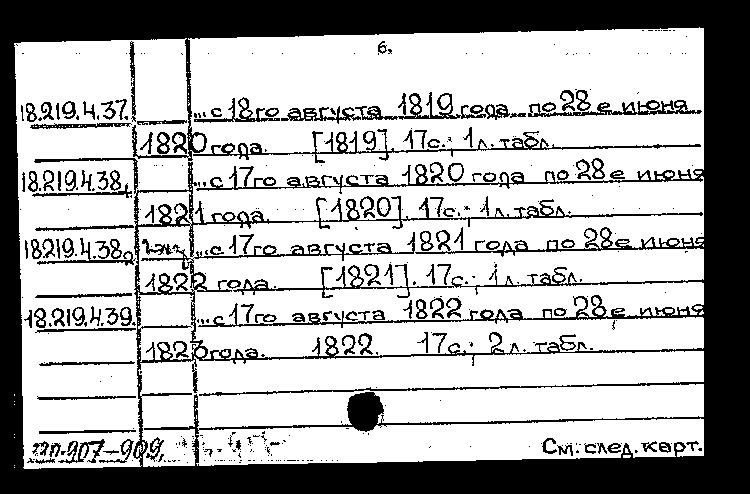 6.
18.219.4.37. ...с 18го августа 1819 года по 28е июня
1820 года. [1819]. 17с.; 1л. табл.
18.219.4.38₁ ...с 17го августа 1820 года по 28е июня
1821 года. [1820]. 17с.; 1л. табл.
18219.4.38₂ 2экз ...с 17го августа 1821 года по 28е июня
1822 года. [1821]. 17с.; 1л. табл.
18.219.4.39. ...с 17го августа 1822 года по 28е июня
1823 года. 1822. 17с.; 2л. табл.
907–909,
См. след. карт.